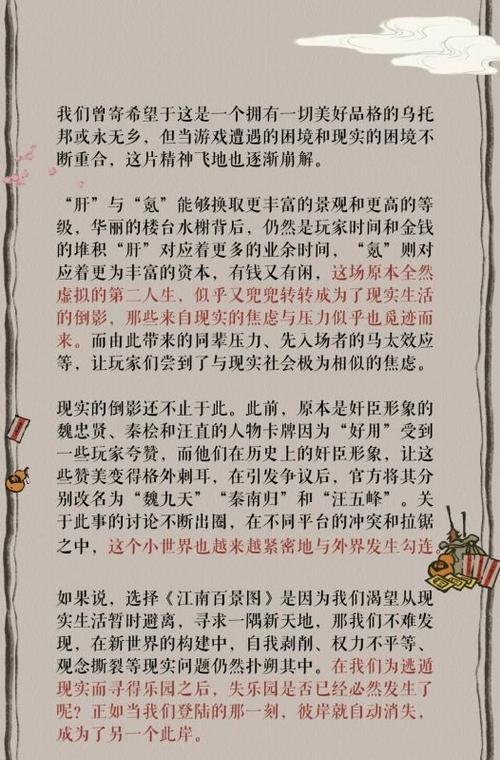 我们曾寄希望于这是一个拥有一切美好品格的乌托
邦或永无乡，但当游戏遭遇的困境和现实的困境不
断重合，这片精神飞地也逐渐崩解。
“肝”与“氪”能够换取更丰富的景观和更高的等
级，华丽的楼台水榭背后，仍然是玩家时间和金钱
的堆积“肝”对应着更多的业余时间，“氪”则对
应着更为丰富的资本，有钱又有闲，这场原本全然
虚拟的第二人生，似乎又兜兜转转成为了现实生活
的倒影，那些来自现实的焦虑与压力似乎也觅迹而
来。而由此带来的同辈压力、先入场者的马太效应
等，让玩家们尝到了与现实社会极为相似的焦虑。
现实的倒影还不止于此。此前，原本是奸臣形象的
魏忠贤、秦桧和汪直的人物卡牌因为“好用”受到
一些玩家夸赞，而他们在历史上的奸臣形象，让这
些赞美变得格外刺耳，在引发争议后，官方将其分
别改名为“魏九天”“秦南归”和“汪五峰”。关
于此事的讨论不断出圈，在不同平台的冲突和拉锯
之中，这个小世界也越来越紧密地与外界发生勾连。
如果说，选择《江南百景图》是因为我们渴望从现
实生活暂时避离，寻求一隅新天地，那我们不难发
现，在新世界的构建中，自我剥削、权力不平等、
观念撕裂等现实问题仍然扑朔其中。在我们为逃遁
现实而寻得乐园之后，失乐园是否已经必然发生了
呢？正如当我们登陆的那一刻，彼岸就自动消失，
成为了另一个此岸。